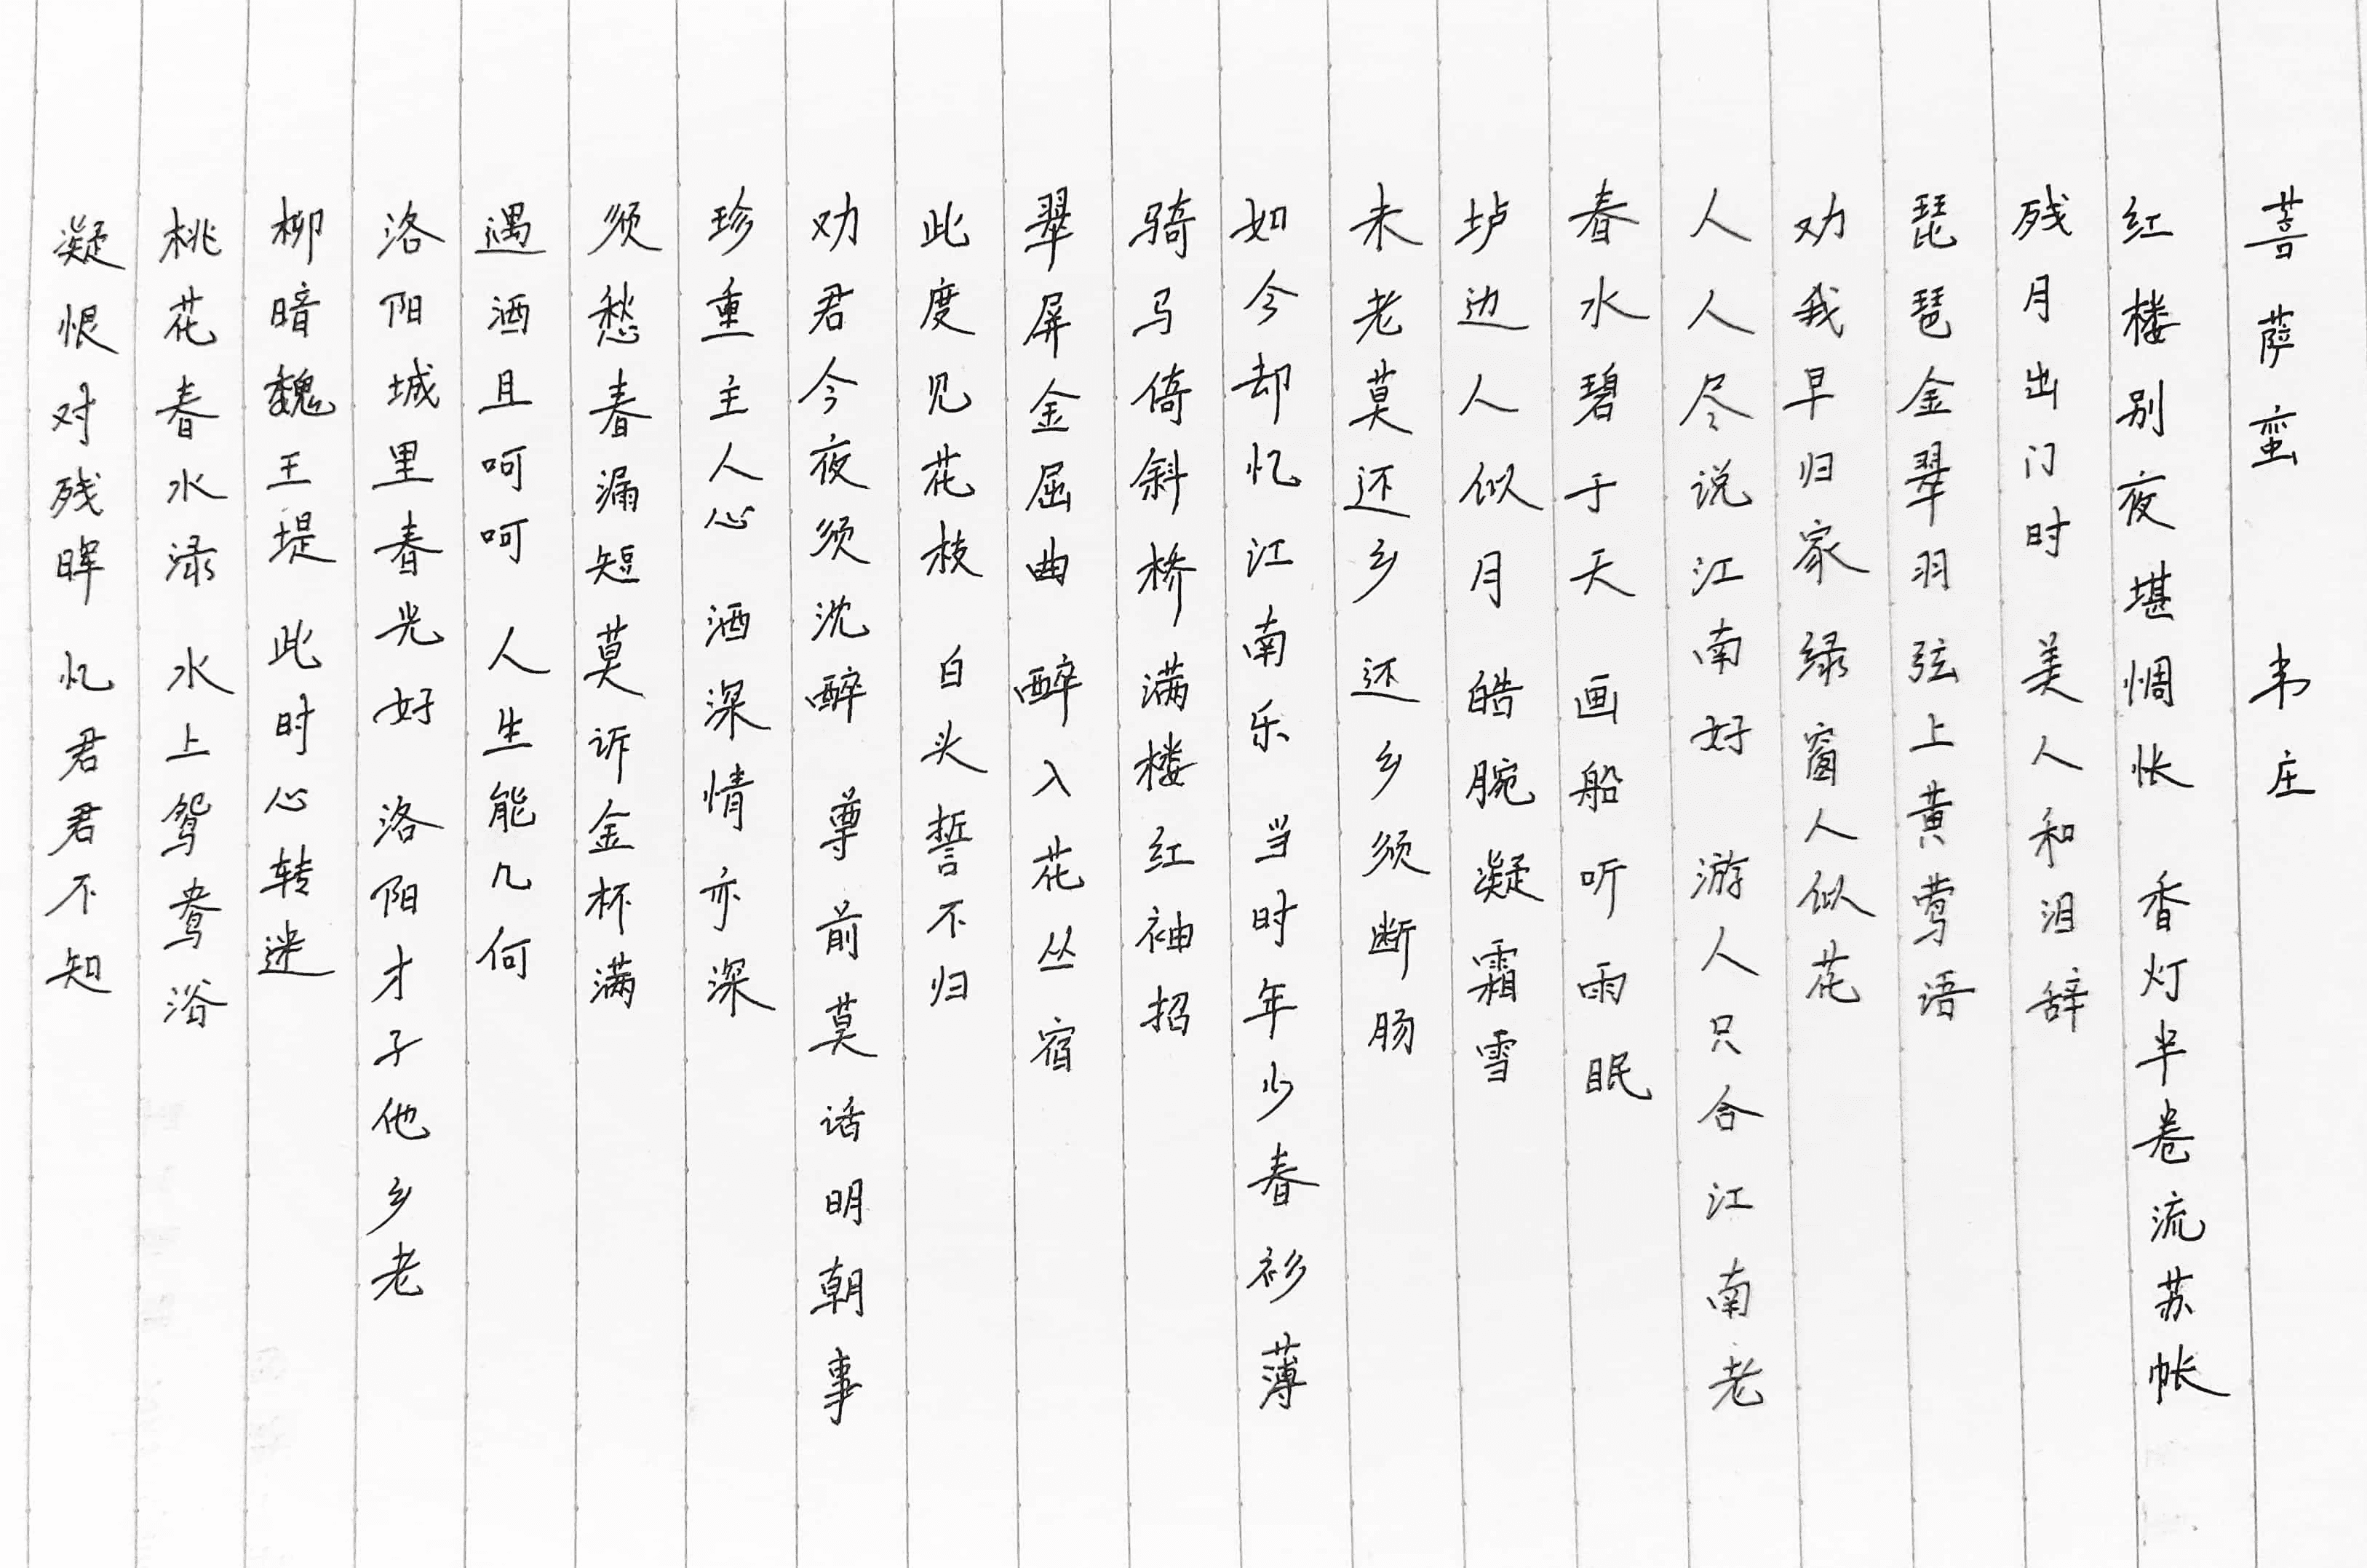 菩萨蛮 韦庄
红楼别夜堪惆怅 香灯半卷流苏帐
残月出门时 美人和泪辞
琵琶金翠羽 弦上黄莺语
劝我早归家 绿窗人似花
人人尽说江南好 游人只合江南老
春水碧于天 画船听雨眠
垆边人似月 皓腕凝霜雪
未老莫还乡 还乡须断肠
如今却忆江南乐 当时年少春衫薄
骑马倚斜桥 满楼红袖招
翠屏金屈曲 醉入花丛宿
此度见花枝 白头誓不归
劝君今夜须沈醉 尊前莫话明朝事
珍重主人心 酒深情亦深
须愁春漏短 莫诉金杯满
遇酒且呵呵 人生能几何
洛阳城里春光好 洛阳才子他乡老
柳暗魏王堤 此时心转迷
桃花春水渌 水上鸳鸯浴
凝恨对残晖 忆君君不知